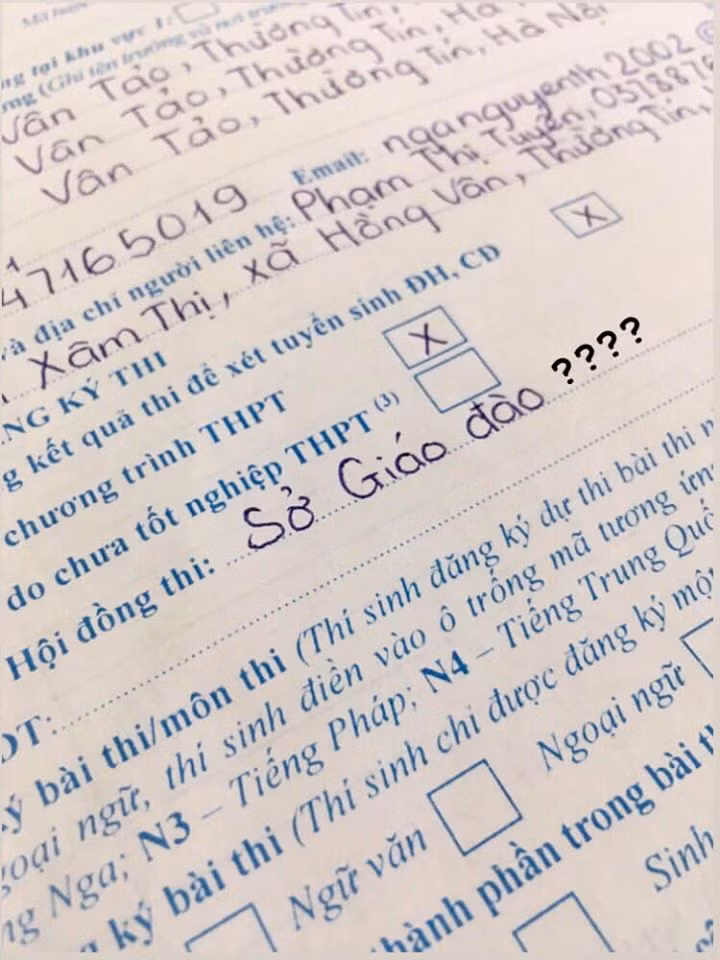 ng tại khu vực 1:
ng (Ghi tên trường và nơi trường
Vân Tảo, Thường Tín,
Vân Tảo, Thường Tín, Hà
Vân Tảo, Thường Tín, Hà Nội
47165019 Email: nganguyenth2002@
và địa chỉ người liên hệ: Phạm Thị Tuyền, 0378876
Xâm Thị, xã Hồng Vân, Thường Tín,
NG KÝ THI
g kết quả thi để xét tuyển sinh ĐH, CĐ X
chương trình THPT X
do chưa tốt nghiệp THPT (3)
Hội đồng thi: Sở Giáo đào ????
DT:
ý bài thi/môn thi (Thí sinh đăng ký dự thi bài thi n
goại ngữ, thí sinh điền vào ô trống mã tương ứng
ng Nga; N3 – Tiếng Pháp; N4 – Tiếng Trung Quố
ký bài thi (Thí sinh chỉ được đăng ký một
Ngữ văn Ngoại ngữ
hành phần trong bài t
Sinh